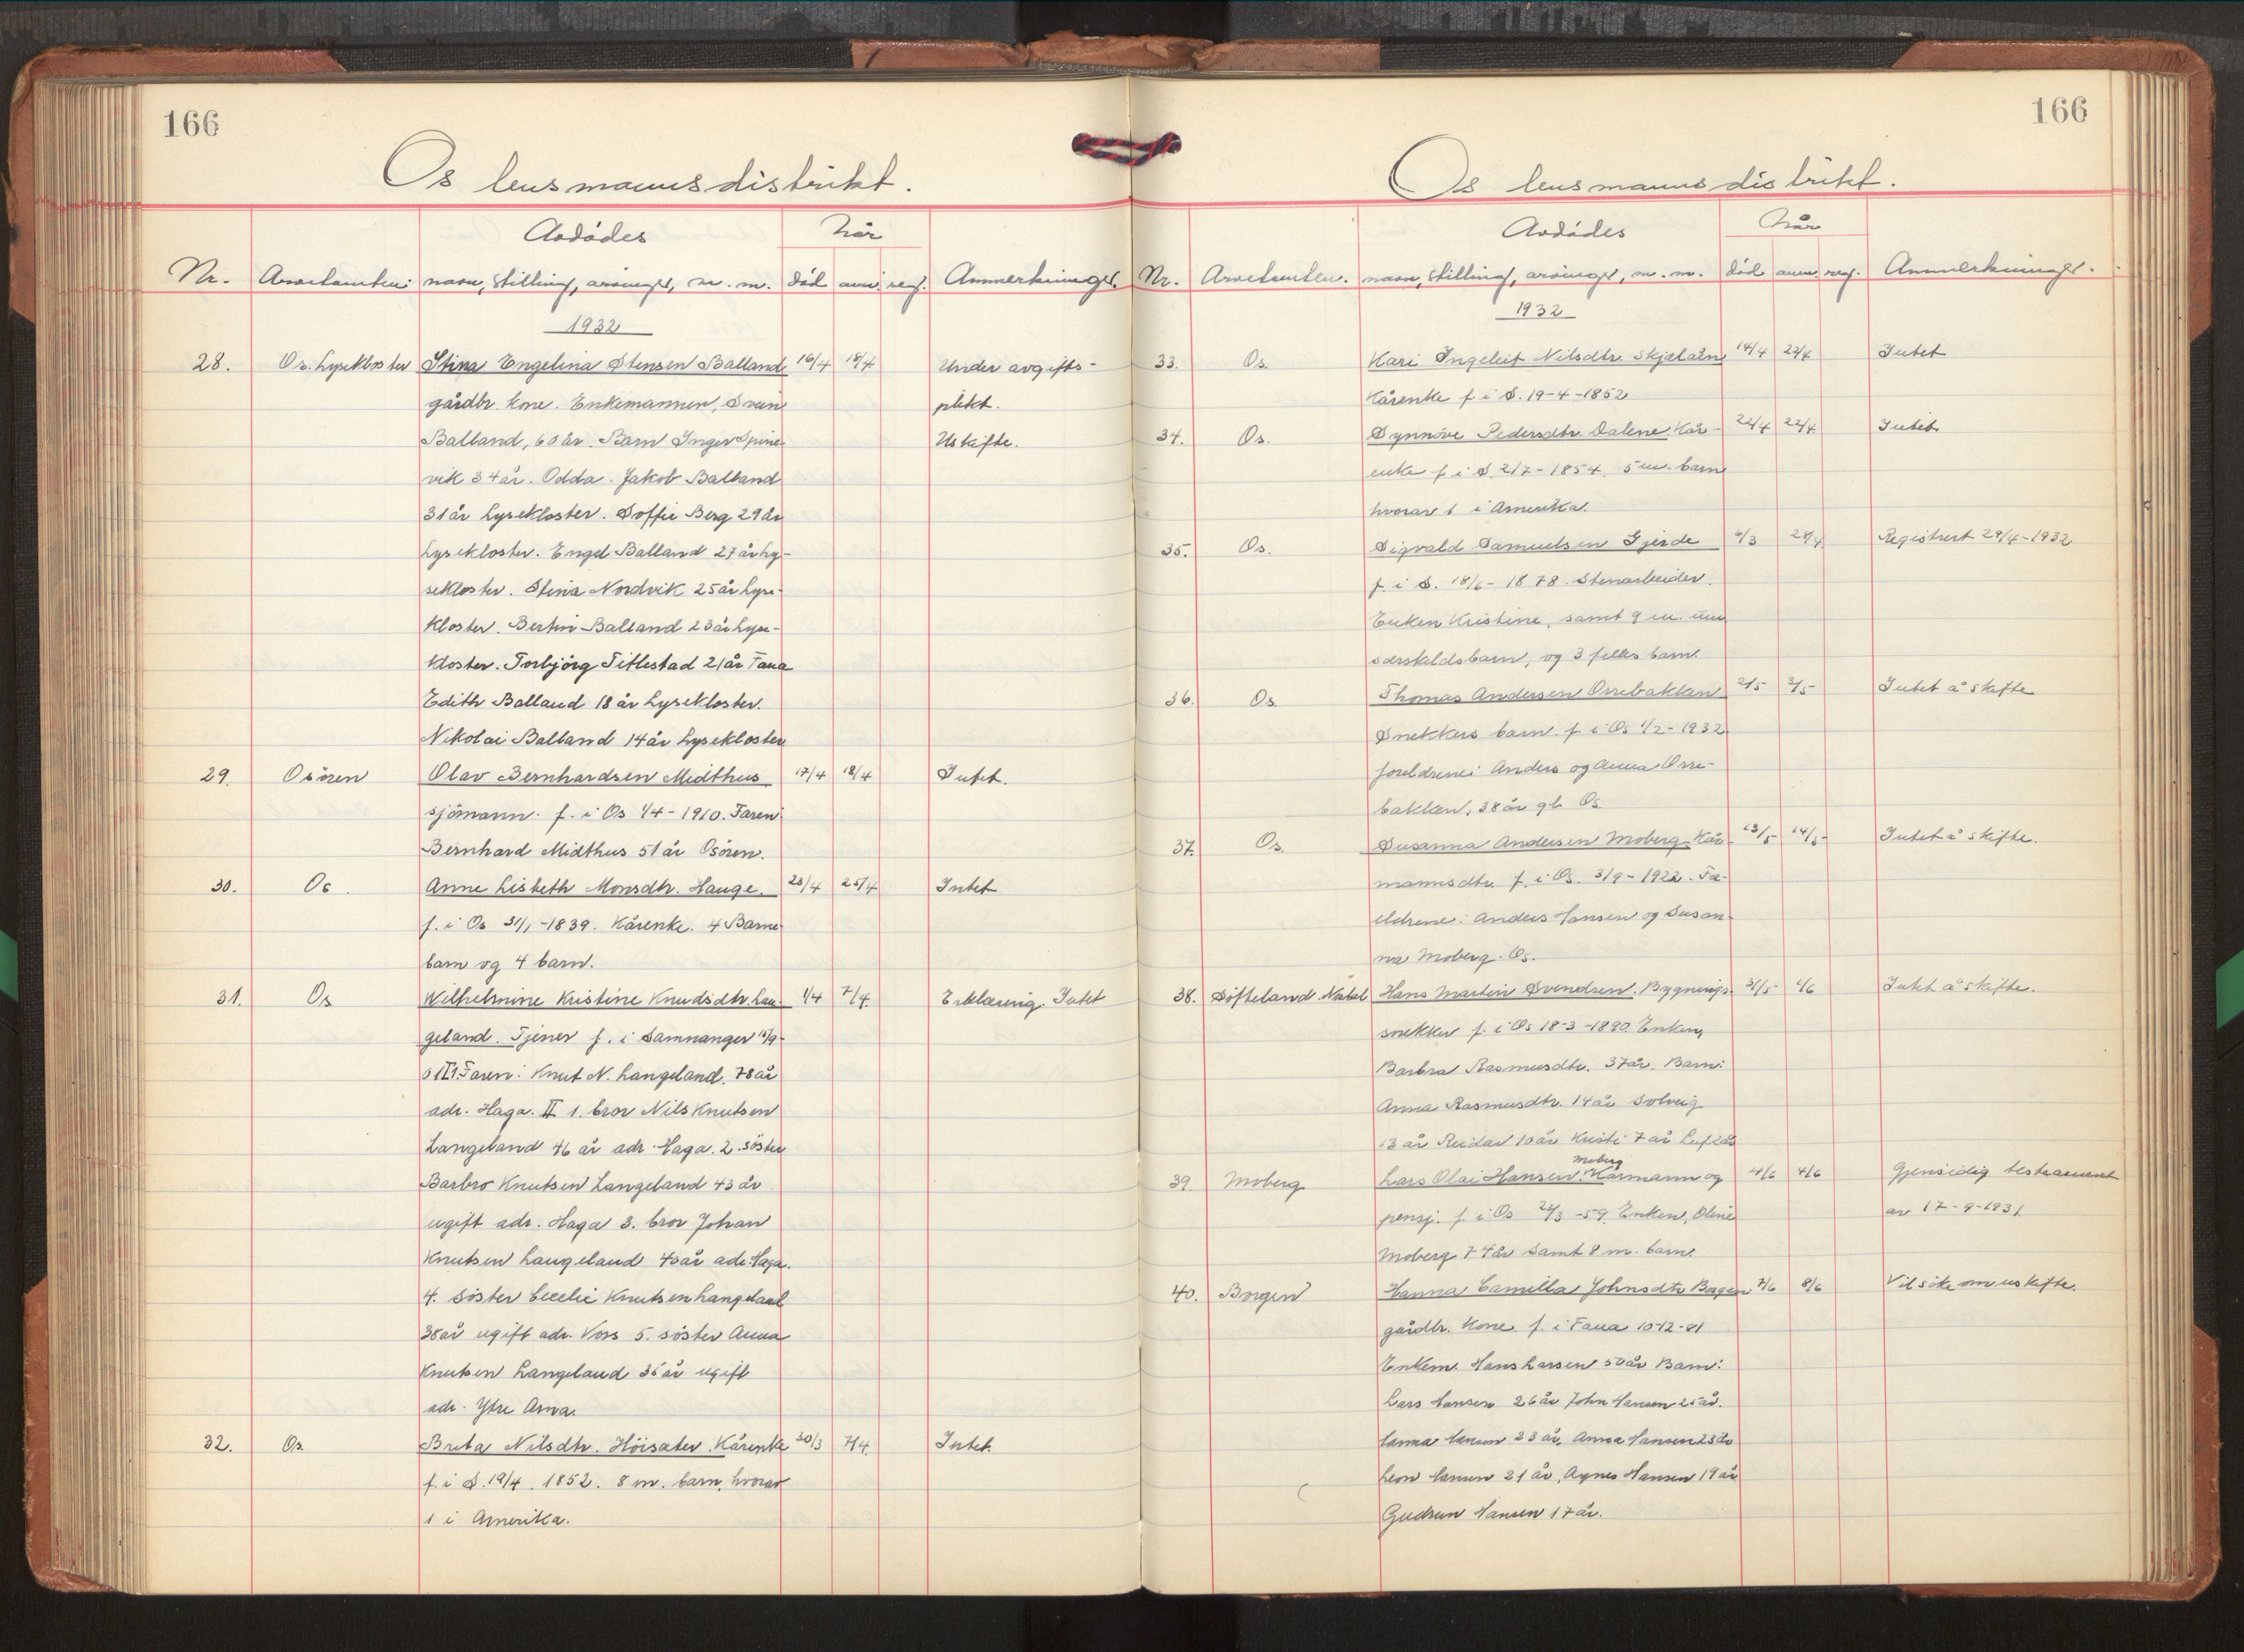 166
Os lensmannsdistrikt.
Avdødes
Når
Nr. Arvetomten: navn, stilling, arvinger, m. m. död anm. reg. Anmerkninger.
1932
28. Os. Lysekloster Stina Engelina Stensen Balland 16/4 18/4 Under avgifts-
gårdbr. kone. Enkemannen, Svein plikt.
Balland, 60 år. Barn Inger Spine- Uskifte.
vik 34 år. Odda. Jakob Balland
31 år Lysekloster. Soffie Berg 29 år
Lysekloster. Engel Balland 27 år Ly-
sekloster. Stina Nordvik 25 år Lyse-
kloster. Bertin Balland 23 år Lyse-
kloster. Torbjörg Titlestad 21 år Fana
Edith Balland 18 år Lysekloster.
Nikolai Balland 14 år Lysekloster
29. Osören Olav Bernhardsen Midthus 17/4 18/4 Intet.
sjömann. f. i Os 1/4-1910. Faren:
Bernhard Midthus 51 år Osören.
30. Os. Anne Lisbeth Monsdtr. Hauge. 23/4 25/4 Intet
f. i Os 31/1-1839. Kårenke. 4 Barne-
barn og 4 barn.
31. Os Wilhelmine Kristine Knudsdtr. Lan- 1/4 7/4 Erklæring. Intet
geland. Tjener f. i Samnanger
Faren: Knut N. Langeland. 78 år
adr. Haga. II 1. bror Nils Knutsen
Langeland 46 år adr. Haga. 2. söster
Barbro Knutsen Langeland 43 år
ugift adr. Haga 3. bror Johan
Knutsen Langeland 40 år adr. Haga.
4. söster Cecelie Knutsen Langeland
38 år ugift adr. Voss 5. söster Anna
Knutsen Langeland 35 år ugift
adr. Ytre Arna.
32. Os. Brita Nilsdtr. Höisæter. Kårenke 30/3 7/4. Intet.
f. i S. 19/4. 1852. 8 m. barn, hvorav
1 i Amerika.
166
Os lensmannsdistrikt.
Avdødes
Når
Nr. Arvetomten. navn, stilling, arvinger, m. m. död anm. reg. Anmerkninger.
1932
33. Os. Kari Ingeleif Nilsdtr. 14/4 22/4 Intet
Kårenke f i S. 19-4-1852
34. Os. Synnöve Pedersdtr. Dalene. Kår- 22/4 22/4. Intet
enke f i S. 2/7-1854. 5 m. barn
hvorav 1 i Amerika.
35. Os. Sigvald Samuelsen Gjerde 6/3 29/4 Registrert 29/4-1932
f. i S. 18/6-1878. Stenarbeider.
Enken Kristine, samt 9 m. um.
særskildsbarn, og 3 felles barn.
36. Os. Thomas Andersen Orrebakken 2/5 3/5- Intet å skifte
Snekkers barn. f i Os 1/2-1932
foreldrene: Anders og Anna Orre-
bakken, 38 år gl. Os
37. Os. Susanna Andersen Moberg. Kår- 13/5 14/5- Intet å skifte.
mannsdtr. f. i Os. 3/9-1922. Fo-
eldrene: Anders Hansen og Susan-
na Moberg. Os.
38. Söfteland Natal Hans Martin Svendsen. Bygnings- 31/5 1/6 Intet å skifte.
snekker f. i Os 18-3-1890. Enken,
Barbra Rasmusdtr. 37 år. Barn:
Anna Rasmusdtr. 14 år Solveig
13 år Reidar 10 år Kristi 7 år Leif 2 år
Moberg
39. Moberg Lars Olai Hansen. Kårmann og 4/6 4/6 Gjensidig testament
pensj. f. i Os 22/3-59. Enken, Oline av 17-9-1931.
Moberg 74 år samt 8 m. barn.
40. Borgen Hanna Camilla Johnsdtr. Borgen 7/6 8/6 Vil söke om uskifte.
gårdbr. kone. f. i Fana 10-12-81
Enkem. Hans Larsen 50 år Barn:
Lars Hansen 26 år John Hansen 25 år.
Hanna Hansen 23 år, Anna Hansen 23 år
Leon Hansen 21 år, Agnes Hansen 19 år
Gudrun Hansen 17 år.